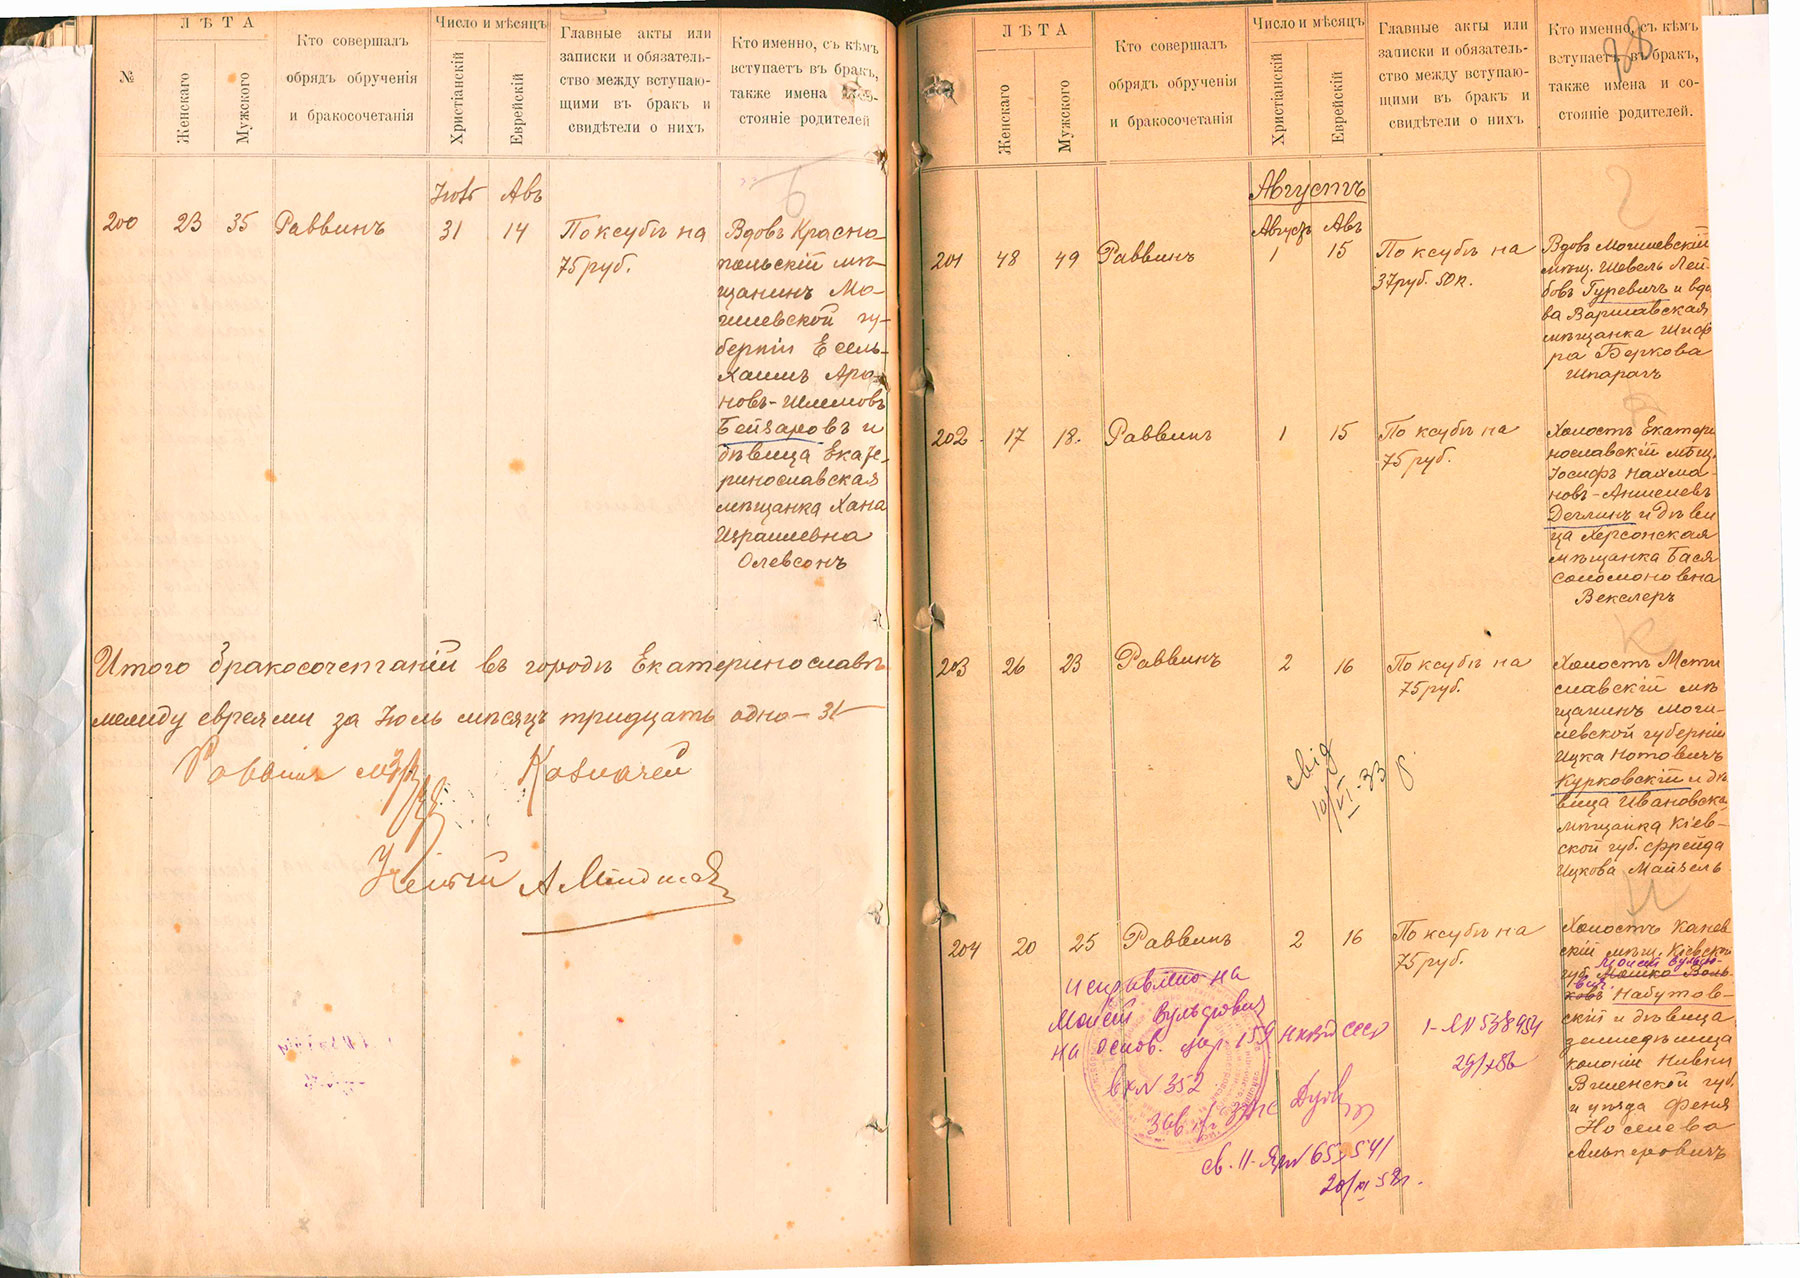 №
ЛѢТА
Женскаго
Мужского
Кто совершалъ
обрядъ обрученія
и бракосочетанія
Число и мѣсяцъ
Христіанскій
Еврейскій
Главные акты или
записки и обязатель-
ство между вступаю-
щими въ бракъ и
свидѣтели о нихъ
Кто именно, съ кѣмъ
вступаетъ въ бракъ,
также имена
стояніе родителей
Авъ
200 23 35 Раввинъ 31 14
По ксубѣ на
75 руб.
Вдовъ Красно
польскій мѣ-
щанинъ Мо-
гилевской гу-
берніи Есель-
Хаимъ Аро-
новъ-Шлемовъ
Бейзаровъ и
дѣвица Екате-
ринославская
мѣщанка Хана
Израилевна
Олевсонъ
Итого бракосочетаній въ городѣ Екатеринославѣ
между евреями за Іюль мѣсяцъ тридцать одно-31-
Раввинъ
Казначей
98
ЛѢТА
Женскаго
Мужского
Кто совершалъ
обрядъ обрученія
и бракосочетанія
Число и мѣсяцъ
Христіанскій
Еврейскій
Главные акты или
записки и обязатель-
ство между вступаю-
щими въ бракъ и
свидѣтели о нихъ
Кто именно, съ кѣмъ
вступаетъ въ бракъ,
также имена и со-
стояніе родителей.
Августъ
Августъ Авъ
201 48 49 Раввинъ 1 15
По ксубѣ на
37 руб. 50 к.
Вдовъ Могилевскій
мѣщ. Шевель Лей-
бовъ Гуревичъ и вдо
ва Варшавская
мѣщанка Шиф
ра Беркова
Шпарагъ
202 17 18. Раввинъ 1 15
По ксубѣ на
75 руб.
Холостъ Екатери
нославскій мѣщ.
Іосифъ Нахма-
новъ-Аншелевъ
Деглинъ и дѣви
ца Херсонская
мѣщанка Бася
Соломоновна
Векслеръ
203 26 23 Раввинъ 2 16
По ксубѣ на
75 руб.
Холостъ Мсти
славскій мѣ
щанинъ Моги-
левской губерніи
Ицка Нотовичъ
Курковскій и дѣ
вица Ивановска
мѣщанка Кіев-
ской губ. Фрейда
Ицкова Майзель
свід
10/VI-33 б
204 20 25 Раввинъ 2 16
По ксубѣ на
75 руб.
Холостъ Канев
скій мѣщ. Кіевской
Моисей Вульфо-
губ. Мошко Воль-
вич
ковъ Набутов-
скій и дѣвица
колоніи
Виленской губ.
и уѣзда Феня
Носелева
Альперовичъ
исправлено на
Моисей Вульфович
на основ. 159 НКВД СССР
вх N 352
1-ЯП 538954